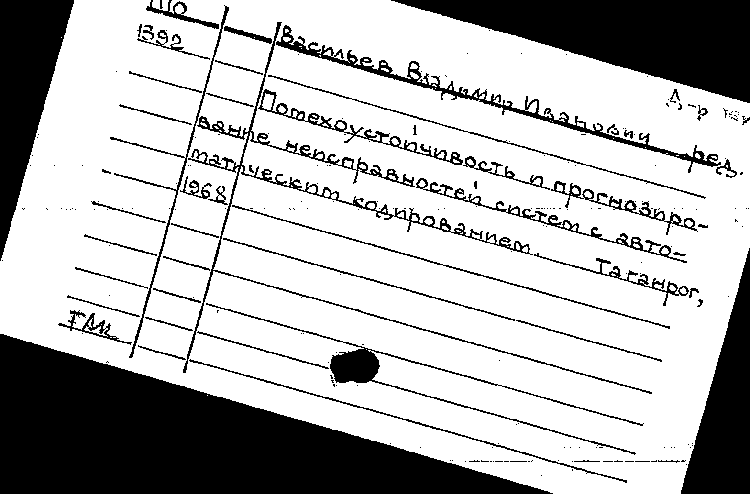 1392
Васильев Владимир Иванович ред.
Помехоустойчивость и прогнозиро-
вание неисправностей систем с авто-
матическим кодированием. Таганрог,
1968